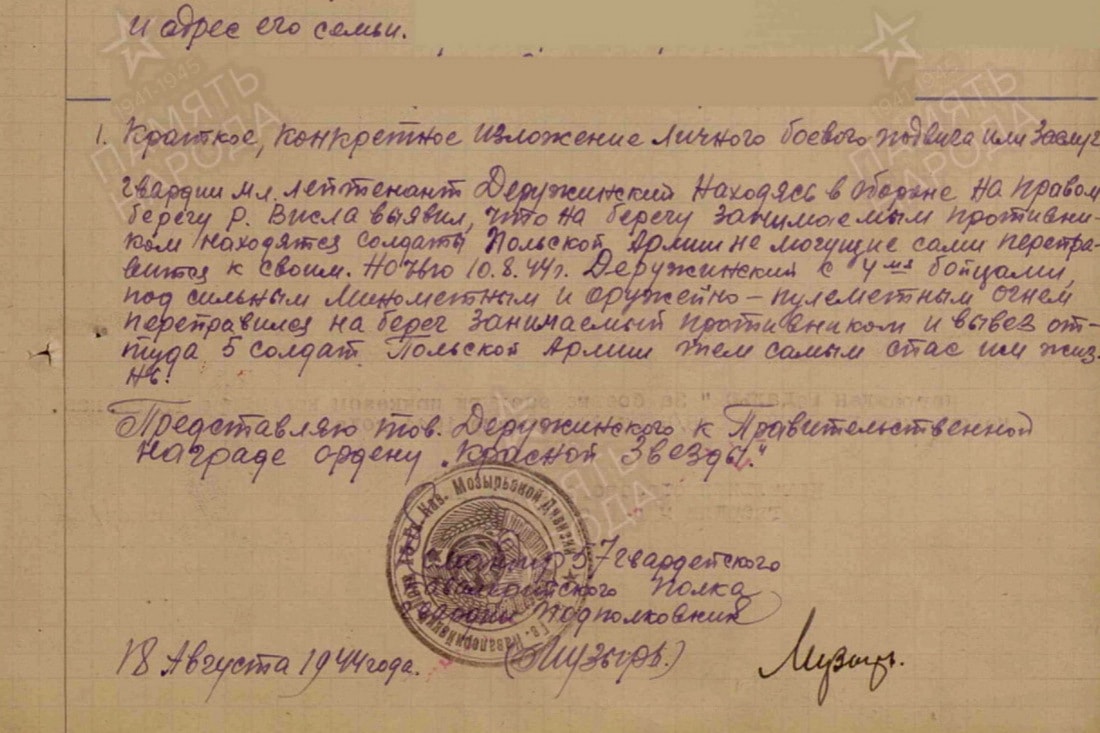 и адрес его семьи.
1. Краткое, конкретное изложение личного боевого подвига или заслуг
гвардии мл. лейтенант Деружинский находясь в обороне на правом
берегу р. Висла выявил, что на берегу занимаемым противни-
ком находятся солдаты Польской Армии не могущие сами перепра-
вится к своим. Ночью 10.8.44г. Деружинский с 4мя бойцами,
под сильным минометным и оружейно-пулеметным огнем
переправился на берег занимаемый противником и вывез от-
туда 5 солдат Польской Армии тем самым спас им жиз-
нь.
Представляю тов. Деружинского к Правительственной
награде ордену "Красной Звезды."
57 гвардейского
Полка
Подполковник
18 Августа 1944 года. (Музырь.) Музырь.
Мозырьской Дивизии
1941-1945
ПАМЯТЬ
НАРОДА
1941-1945
ПАМЯТЬ
НАРОДА
ПАМЯТЬ
НАРОДА
ПАМЯТЬ
НАРОДА